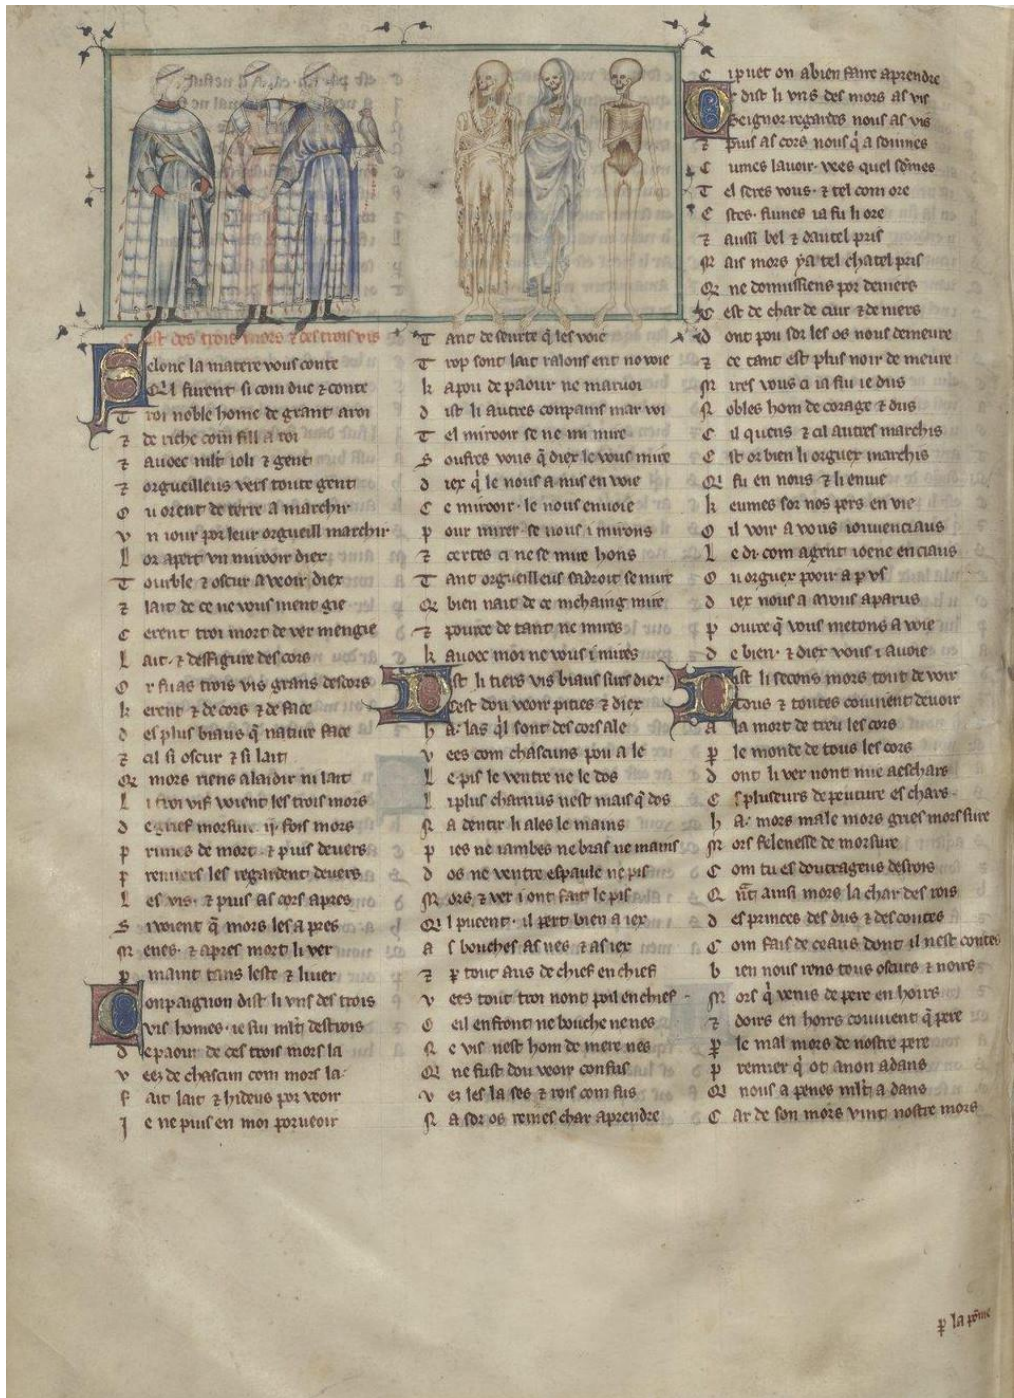 C est des trois mors & des trois vis
Selonc la matere vous conte
Qil furent si com duc & conte
Troi noble home de grant aroi
& de riche com fill a roi
& avoec mlt ioli & gent
& orgueilleus vers toute gent
Qu orent de terre a marchir
Vn iour por leur orgueill marchir
Lor apert vn miroir diex
Tourble & oscur a veoir diex
& lait de ce ne vous ment gie
Cerent troi mort de ver mengie
Lait & deffigure des cors
Or fu as trois vis grans descors
kerent & de cors & de face
des plus biaus q̃ nature face
& cil si oscur & si lait
Q mors riens alaidir ni lait
Li troi vif voient les trois mors
de grief morsure ij fois mors
primes de mort & puis de vers
premiers les regardent devers
Les vis & puis as cors apres
Si voient q̃ mors les a pres
Menes & apres mort li ver
ꝑ maint tans leste & liver
Conpaignon dist li vns des trois
vis homes ie sui mlt destrois
de paour de ces trois mors la
veez de chascun com mors la
fait lait & hideus por veoir
Je ne puis en moi porveoir
Tant de seurte q̃ les voie
Trop sont lait ralons ent no voie
ka pou de paour ne marvoi
dist li autres conpains mar voi
Tel miroir se ne mi mire
Souffres vous q̃ diex le vous mire
diex q̃ le nous a mis en voie
Ce miroir le nous envoie
pour mirer se nous i mirons
& certes ci ne se mire hons
Tant orgueilleus sadroit se mire
Q bien nait de ce mehaing mire
& pource de tant ne mires
kavoec moi ne vous i mires
Dist li tiers vis biaus sires diex
Cest dou veoir pities & diex
ha las q̃l sont des cors ale
vees com chascuns pou a le
Le pis le ventre ne le dos
Li plus charnus nest mais q̃ dos
Na dentir li ales le mains
pies ne iambes ne bras ne mains
dos ne ventre espaule ne pis
Mors & ver i ont fait le pis
Ql pueent il pert bien a iex
as bouches as nes & as iex
& ꝑ tout aus de chief en chief
vees tout troi nont poil en chief
Oeil en front ne bouche ne nes
Ne vis nest hom de mere nes
Q ne fust dou veoir confus
vei les la ses & rois com fus
Na sor os remes char aprendre
Ci puet on a bien faire aprendre
Or dist li vns des mors as vis
Seignor regardes nous as vis
& puis as cors nous q̃ a sommes
Eumes lavoir vees quel sõmes
Tel seres vous & tel com ore
Estes fumes ia fu li ore
& aussi bel & dautel pris
Mais mors y a tel chatel pris
Q ne donissiens por deniers
Cest de char de cuir & de niers
dont pou sor les os nous demeure
& ce tant est plus noir de meure
Mires vous ci ia fui ie dus
Nobles hom de corage & dus
Cil quens & cil autres marchis
Cist or bien li orguex marchis
Q fu en nous & li envis
keumes sor nos pers en vie
diex nous a a vous aparus
pource q̃ vous metons a voie
de bien & diex vous i avoie
Dist li secons mors tout de voir
Tous & toutes convient devoir
a la mort de treu les cors
ꝑ le monde de tous les cors
dont li ver vont nue a eschars
Es plusieurs de peuture es chars
ha mors male mors gries mors sure
Mors felenesse de morsure
Com tu es doutrageus destrois
Q ñt ainsi mors la char des rois
des princes des dus & des contes
Com fais de ceaus dont il nest contes
bien nous rens tous oscurs & noirs
Mors q̃ venis de pere en hoirs
& doirs en hoirs convient q̃ pere
ꝑ le mal mors de nostre pere
premier q̃ ot a non adans
Q nous a penes mlt a dans
Car de son mors vint nostre mors
ꝑ la põme